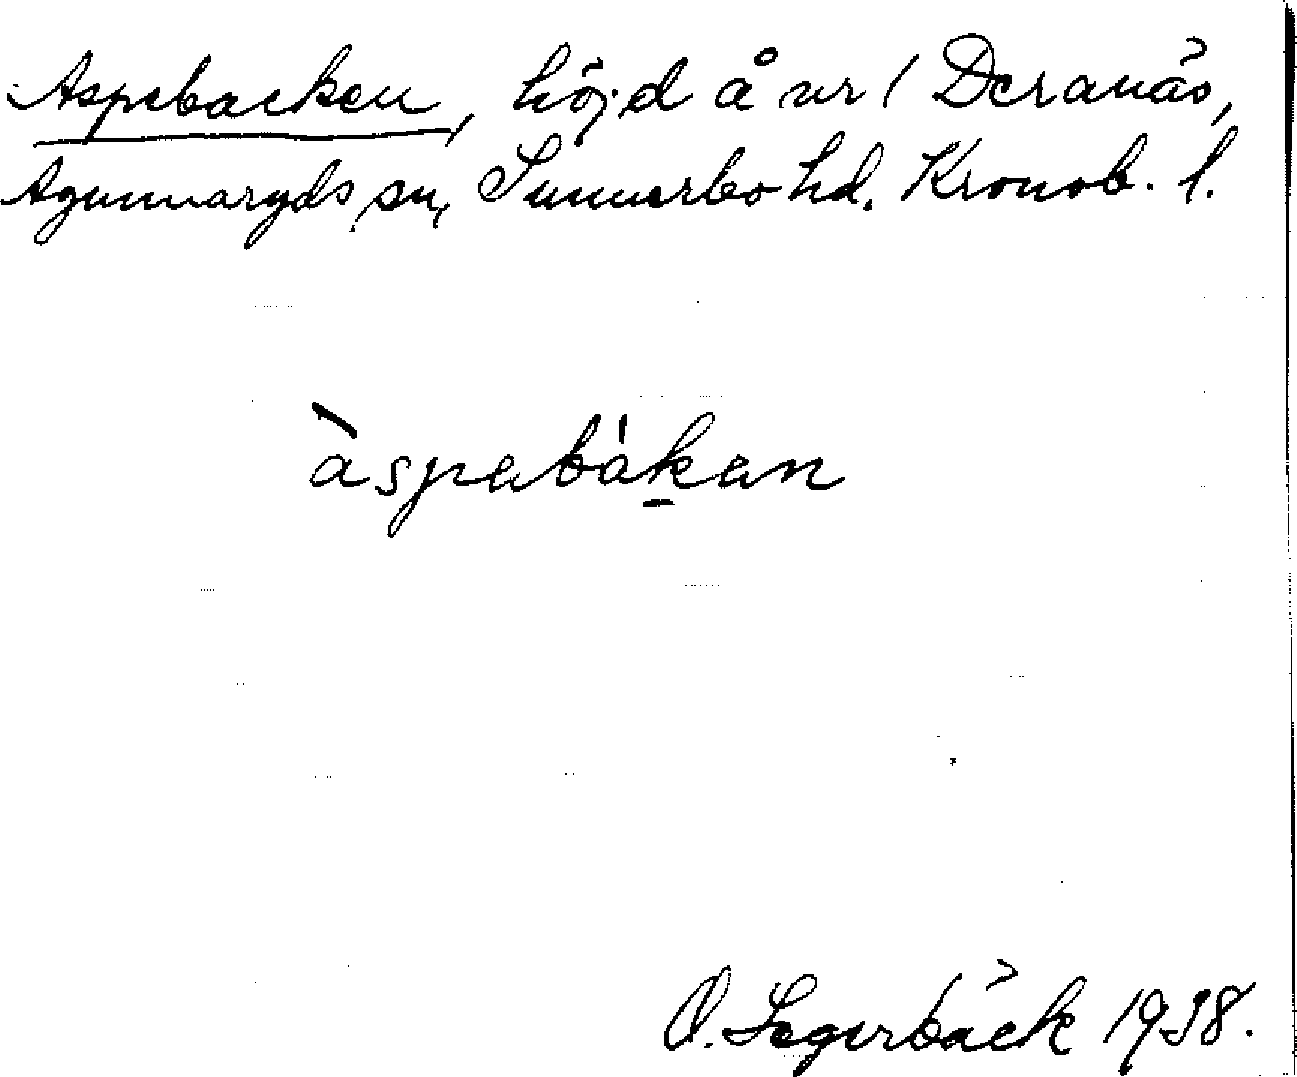 Aspebacken, höjd å nr 1 Deranäs,
Agunnaryds sn, Sunnerbo hd. Kronob. l.
àspabákan
O. Segerbäck 1938.